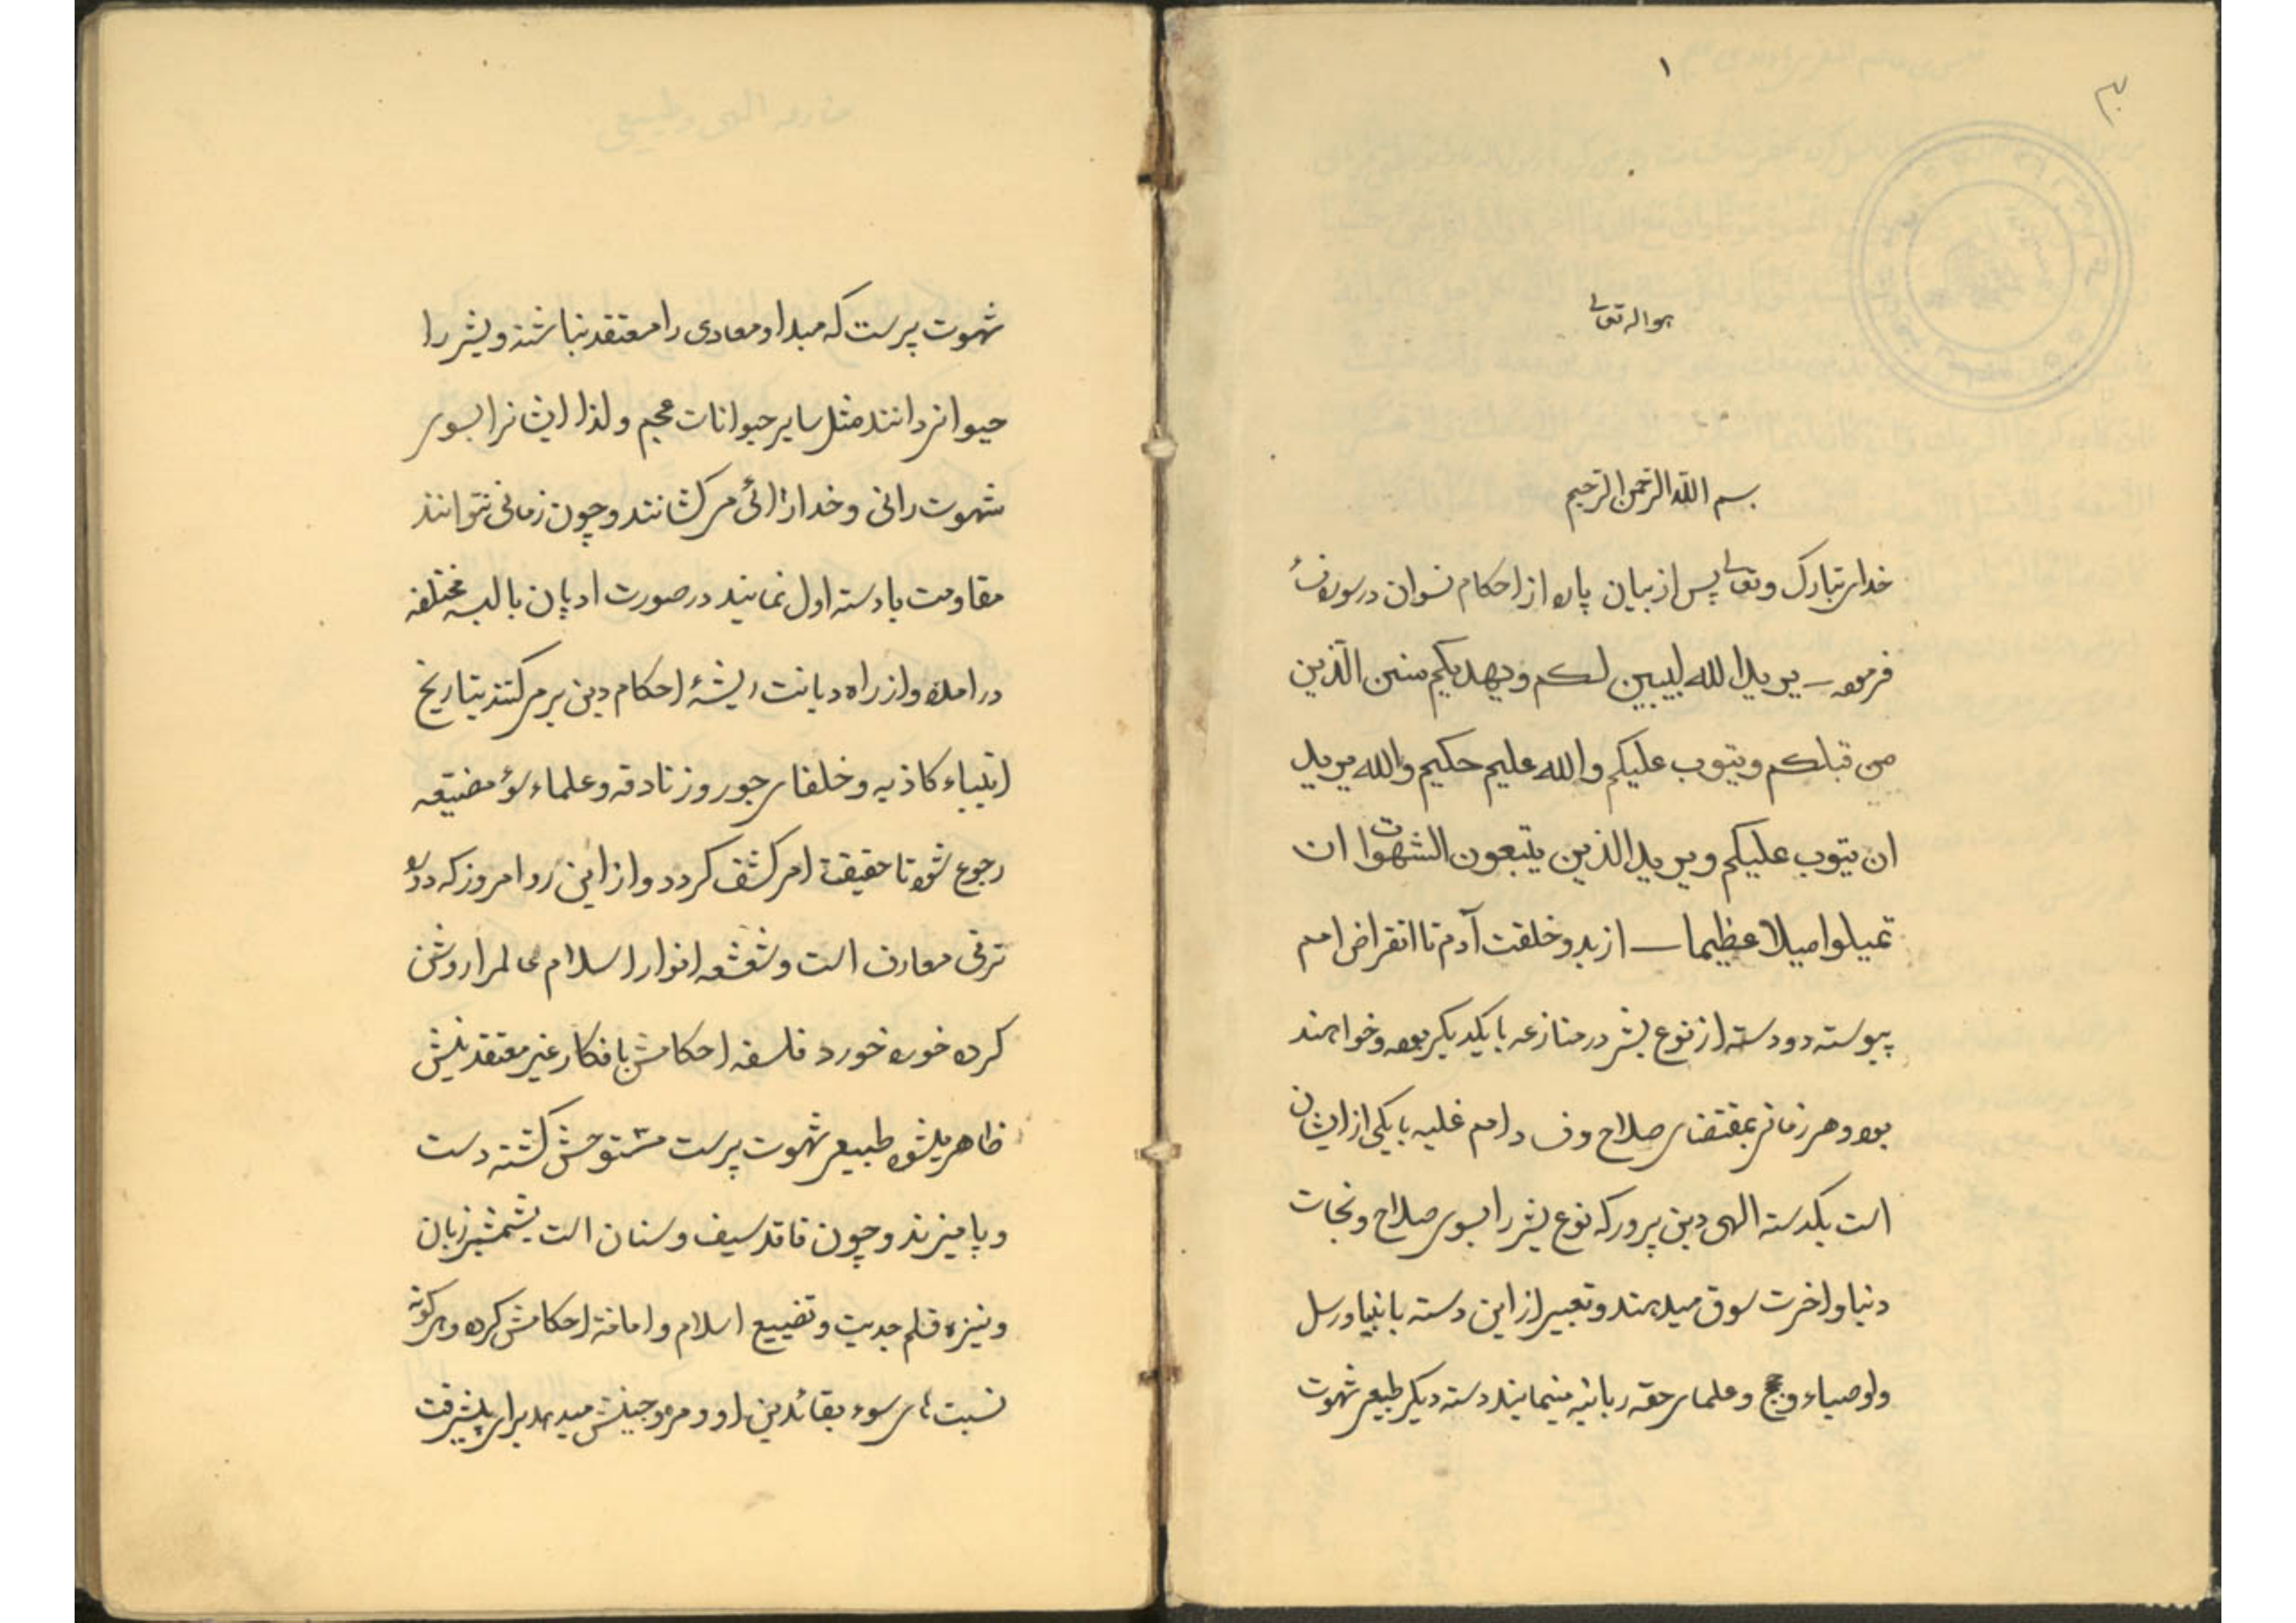 ۱
هو الله تعالی
بسم الله الرحمن الرحیم
خدای تبارک و تعالی پس از بیان پاره از احکام نسوان در سوره نساء
فرموده ـ یرید الله لیبین لکم ویهدیکم سنن الذین
من قبلکم ویتوب علیکم والله علیم حکیم والله یرید
ان یتوب علیکم ویرید الذین یتبعون الشهوات ان
تمیلوا میلا عظیما ـ از بدو خلقت آدم تا انقراض امم
پیوسته دو دسته از نوع بشر در منازعه با یکدیگر بوده و خواهند
بود و هر زمانی بمقتضای صلاح و فساد امم غلبه با یکی از ایشان
است یکدسته الهی دین پرور که نوع بشر را بسوی صلاح و نجات
دنیا و اخرت سوق میدهند و تعبیر از این دسته بانبیا و رسل
و اوصیاء و حجج و علمای حقه ربانیه مینمایند دسته دیگر طبیعی شهوت
شهوت پرست که مبدا و معادی را معتقد نباشند و بشر را
حیوانی دانند مثل سایر حیوانات عجم و لذا ایشانرا بسوی
شهوت رانی و خدا میکشانند و چون زمانی نتوانند
مقاومت با دسته اول نمایند در صورت ادیان بالبسه مختلفه
در امده و از راه دیانت ریشهٔ احکام دین بر میکنند بتاریخ
انبیاء کاذبه و خلفای جور و زنادقه و علماء سوء مضیعه
رجوع شود تا حقیقة امر کشف کردد و از این رو امروز که دوره
ترقی معارف است و شعشعه انوار اسلام عالم را روشن
کرده خورده خورده فلسفه احکامش بافکار غیر معتقدینش
ظاهر میشود طبیعی شهوت پرست متوحش کشته دست
و پا میزند و چون فاقد سیف و سنان است بشمشیر زبان
و نیزه قلم جدیت و تضییع اسلام و اماته احکامش کرده و هرگونه
نسبت های سوء بقائدین او و مروجینش میدهد برای پیشرفت